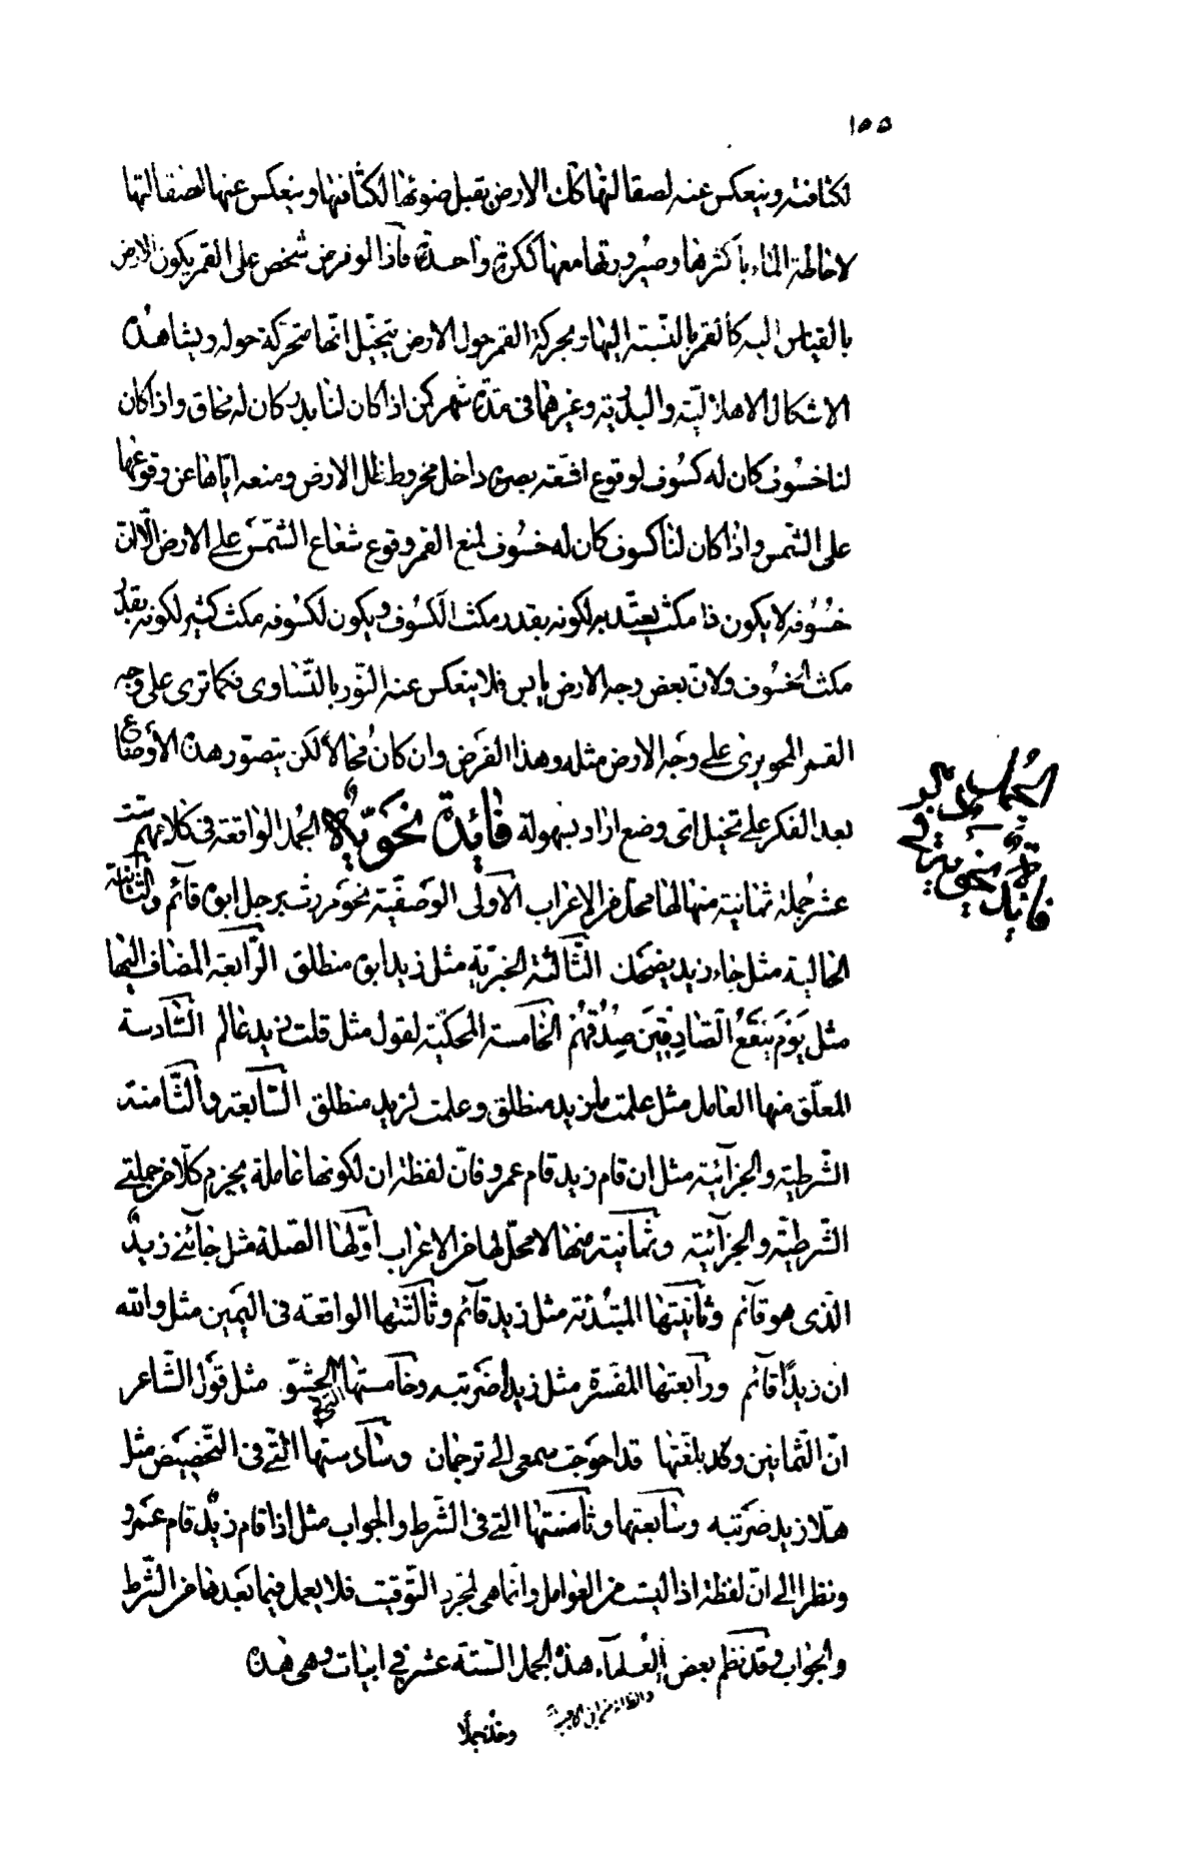 ١٥٥
لكثافته وينعكس عنه لصقالتها كك الارض يقبل ضوئها لكثافتها وينعكس عنها لصقالتها
لاحاطة الماء باكثرها وصيرورتها معها ككرة واحدة فاذا لو فرض شخص على القمر يكون الارض
بالقياس اليه كالقمر بالنسبة الينا وبحركة القمر حول الارض يتخيّل انّها متحرّكة حوله ويشاهد
الاشكال الاهلاليّة والبدريّة وغيرهما فى مدّة شهر لكن اذا كان لنا بدر كان له محاق واذا كان
لنا خسُوف كان له كسُوف لوقوع اشعّة بصره داخل مخروط ظل الارض ومنعه ايّاها عن وقوعها
على الشمس واذا كان لنا كسوف كان له خسُوف لمنع القمر وقوع شعاع الشّمس على الارض الّا انّ
خسُوفه لا يكون ذا مكث يعتدّ به لكونه بقدر مكث الكسُوف ويكون لكسُوفه مكث كثير لكونه بقدر
مكث الخسُوف ولانّ بعض وجه الارض يابس فلا ينعكس عنه النّور بالتّساوى فكما ترى على وجه
القمر المحو يرى على وجه الارض مثله وهذا الفرض وان كان محالا لكن يتصوّر هذه الأوضاع
بعد الفكر على تخيل اى وضع اراد بسهولة فائدة نحويّة الجُمل الواقعة فى كلامهم ستّ
عشر جُملة ثمانية منها لها محلّ من الاعراب الأولى الوصفيّة نحو مررت برجل ابوه قائم والثّانية
الحاليّة مثل جاء زيد يضحك الثّالثة الخبريّة مثل زيد ابوه منطلق الرّابعة المضاف اليها
مثل يَوْمَ يَنْفَعُ الصّادِقِينَ صِدْقُهُمْ الخامسة المحكيّة لقول مثل قلت زيد عالم السّادسة
المعلّق منها العامل مثل علمت ازيد منطلق وعلمت لزيد منطلق السّابعة والثّامنة
الشّرطيّة والجزآئيّة مثل ان قام زيد قام عمرو فانّ لفظة ان لكونها عاملة يجزم كلّا من جملتى
الشّرطيّة والجزآئيّة وثمانية منها لا محلّ لها من الاعراب اوّلها الصّلة مثل جائنى زيدٌ
الّذى هو قائم وثانيتها المبتدئة مثل زيد قآئم وثالثتها الواقعة فى اليمين مثل والله
ان زيدًا قآئم ورابعتها المفسّرة مثل زيدا ضربته وخامستها الحشو مثل قول الشّاعر
انّ الثّمانين وقد بلغتها قد احوجت سمعى الى ترجمان وسادستها الّتى فى التّخصيص مثل
هلّا زيد ضربته وسابعتها وثامنتها التى فى الشّرط والجواب مثل اذا قام زيدٌ قام عمرو
ونظرا الى انّ لفظة اذا ليست من العوامل وانّما هى لمجرّد التّوقيت فلا يعمل فيما بعدها من الشّرط
والجواب وقد نظم بعض العلمآء هذه الجمل الستّة عشر فى ابيات وهى هذه
وخذ جملا
فائدة نحوية فى
الجمل